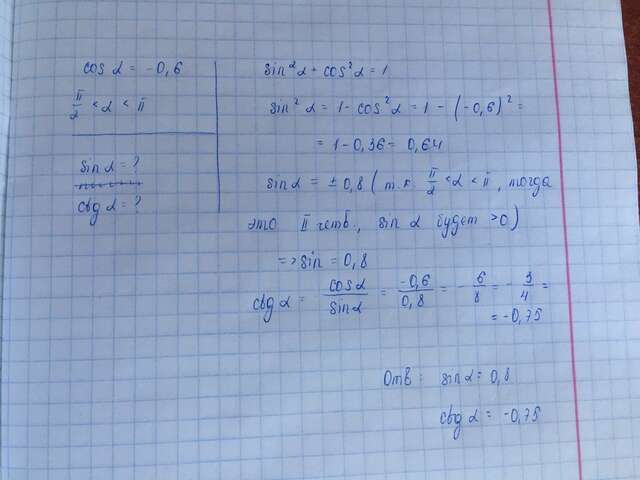 cos α = -0,6
π/2 < α < π
sin α = ?
ctg α = ?
sin²α + cos²α = 1
sin²α = 1 - cos²α = 1 - (-0,6)² =
= 1 - 0,36 = 0,64
sin α = ± 0,8 (т.к. π/2 < α < π, тогда
это II четв., sin α будет > 0)
=> sin = 0,8
ctg α = cos α / sin α = -0,6 / 0,8 = - 6/8 = - 3/4 =
= -0,75
Отв: sin α = 0,8
ctg α = -0,75